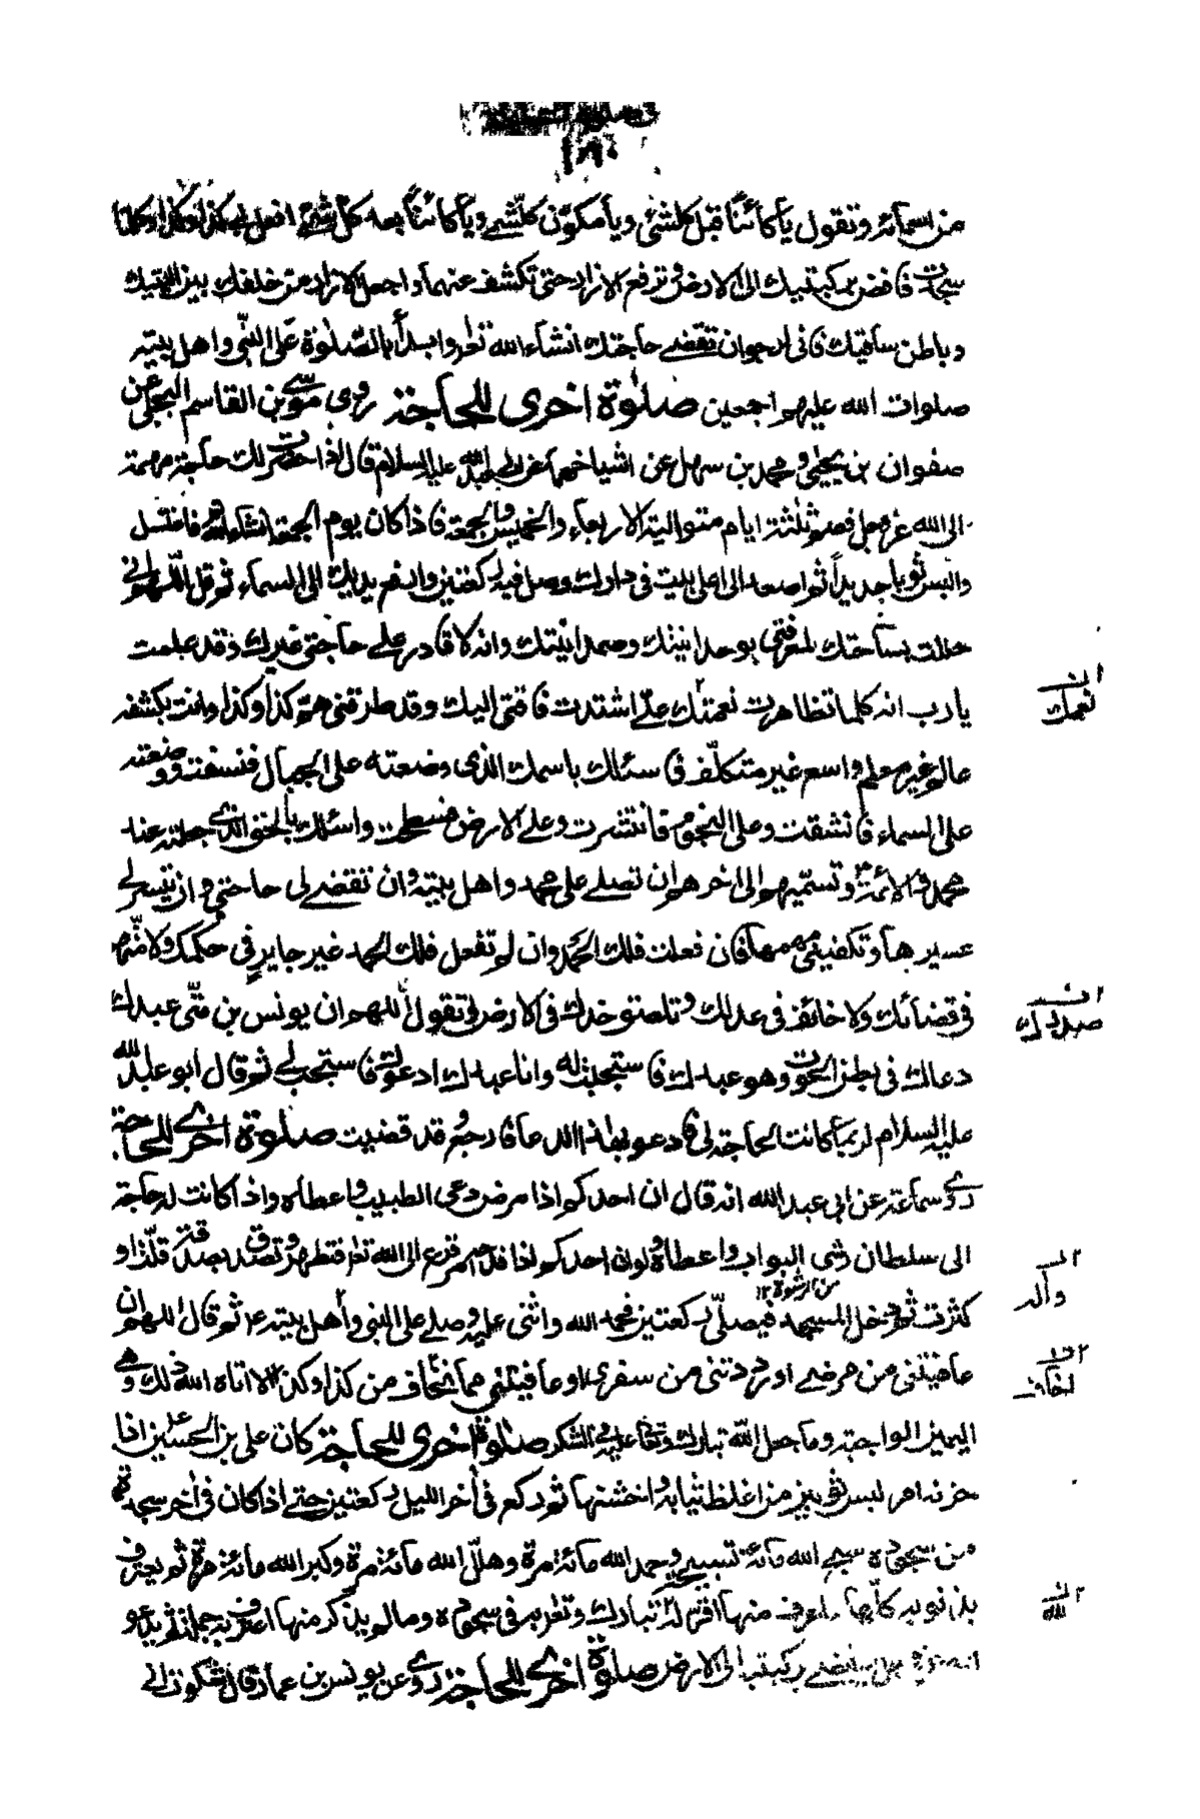 ١٨٠
من اسمائه وتقول يا كائناً قبل كلشئ ويا مكوّن كلشے ويا كائناً بعد كل شئ افعل بى كذا وكذا وكلما
سجدت فافض بركبتيك الى الارض وترفع الازار حتى تكشف عنهما واجعل الازار من خلفك بين اليتيك
وباطن ساقيك فانى ارجو ان تقضے حاجتك انشاء الله تعالى وابدأ بالصّلوٰة على النّبى واهل بيته
صلوات الله عليهم اجمعين صلوٰة اخرى للحاجة روى موسى بن القاسم البجلى عن
صفوان بن يحيى ومحمد بن سهل عن اشياخهما عن ابى عبد الله عليه السلام قال اذا حضرت لك حاجة مهمة
الى الله عز وجل فصم ثلثة ايام متوالية الاربعاء والخميس والجمعة فاذا كان يوم الجمعة انشاء الله فاغتسل
والبس ثوبا جديداً ثم اصعد الى اعلى بيت فى دارك وصل فيه ركعتين وارفع يديك الى السماء ثم قل اللّهم انى
حللت بساحتك لمعرفتى بوحدانيتك وصمدانيّتك وانه لا قادر على حاجتى غيرك وقد علمت
يا رب انه كلما تظاهرت نعمتك علىّ اشتدت فاقتى اليك وقد طرقنى همّ كذا وكذا وانت بكشفه
عالم غير معلم واسع غير متكلّف فاسئلك باسمك الذى وضعته على الجبال فنسفت ووضعته
على السماء فانشقت وعلى النجوم فانتثرت وعلى الارض فسطحت واسئلك بالحق الذى جعلته عند
محمد والائمة وتسمّيهم الى اخرهم ان تصلے على محمد واهل بيته وان تقضے لى حاجتى وان تيسر لے
عسيرها وتكفينى مهمها فان فعلت فلك الحمد وان لم تفعل فلك الحمد غير جاير فى حكمك ولا متّهم
فى قضائك ولا خائف فى عدلك وتلصق خدك فى الارض وتقول اللهم ان يونس بن متّى عبدك
دعاك فى بطن الحوت وهو عبدك فاستجبت له وانا عبدك ادعوك فاستجب لے ثم قال ابو عبد الله
عليه السلام لربما كانت الحاجة لى فادعو بهذا الدعاء فارجع وقد قضيت صلوٰة اخرى للحاجة
روى سماعة عن ابى عبد الله انه قال ان احدكم اذا مرض دعى الطبيب واعطاه واذا كانت له حاجة
الى سلطان رشى البواب واعطاه ولو ان احدكم اذا فدحه امر فزع الى الله تعالى فتطهر وتصدق بصدقة قلّت او
من الرشوة ١٢
كثرت ثم دخل المسجد فيصلّى ركعتين فحمد الله واثنى عليه وصلے على النبى واهل بيته ثم قال اللهم ان
عافيتنى من مرضے او رددتنى من سفرى او عافيتنى مما اخاف من كذا وكذا الا اتاه الله ذلك وهے
اليمين الواجبة وما جعل الله تبارك وتعالى عليه فى الشكر صلوٰة اخرى للحاجة كان على بن الحسين اذا
حزنه امر لبس ثوبين من اغلظ ثيابه واخشنها ثم ركع فى اخر الليل ركعتين حتى اذا كان فى اخر سجدة
من سجوده سبح الله مائة تسبيح وحمد الله مائة مرة وهلّل الله مائة مرة وكبر الله مائة مرة ثم يعترف
بذنوبه كلّها ما عرف منها اقر له تبارك وتعالى به فى سجوده وما لم يذكر منها اعترف به جملة ثم يدعو
الله عز وجل ويفضے بركبتيه الى الارض صلوٰة اخرے للحاجة روى عن يونس بن عمار قال شكوت الى
نعمك
والد
اخاف
الله